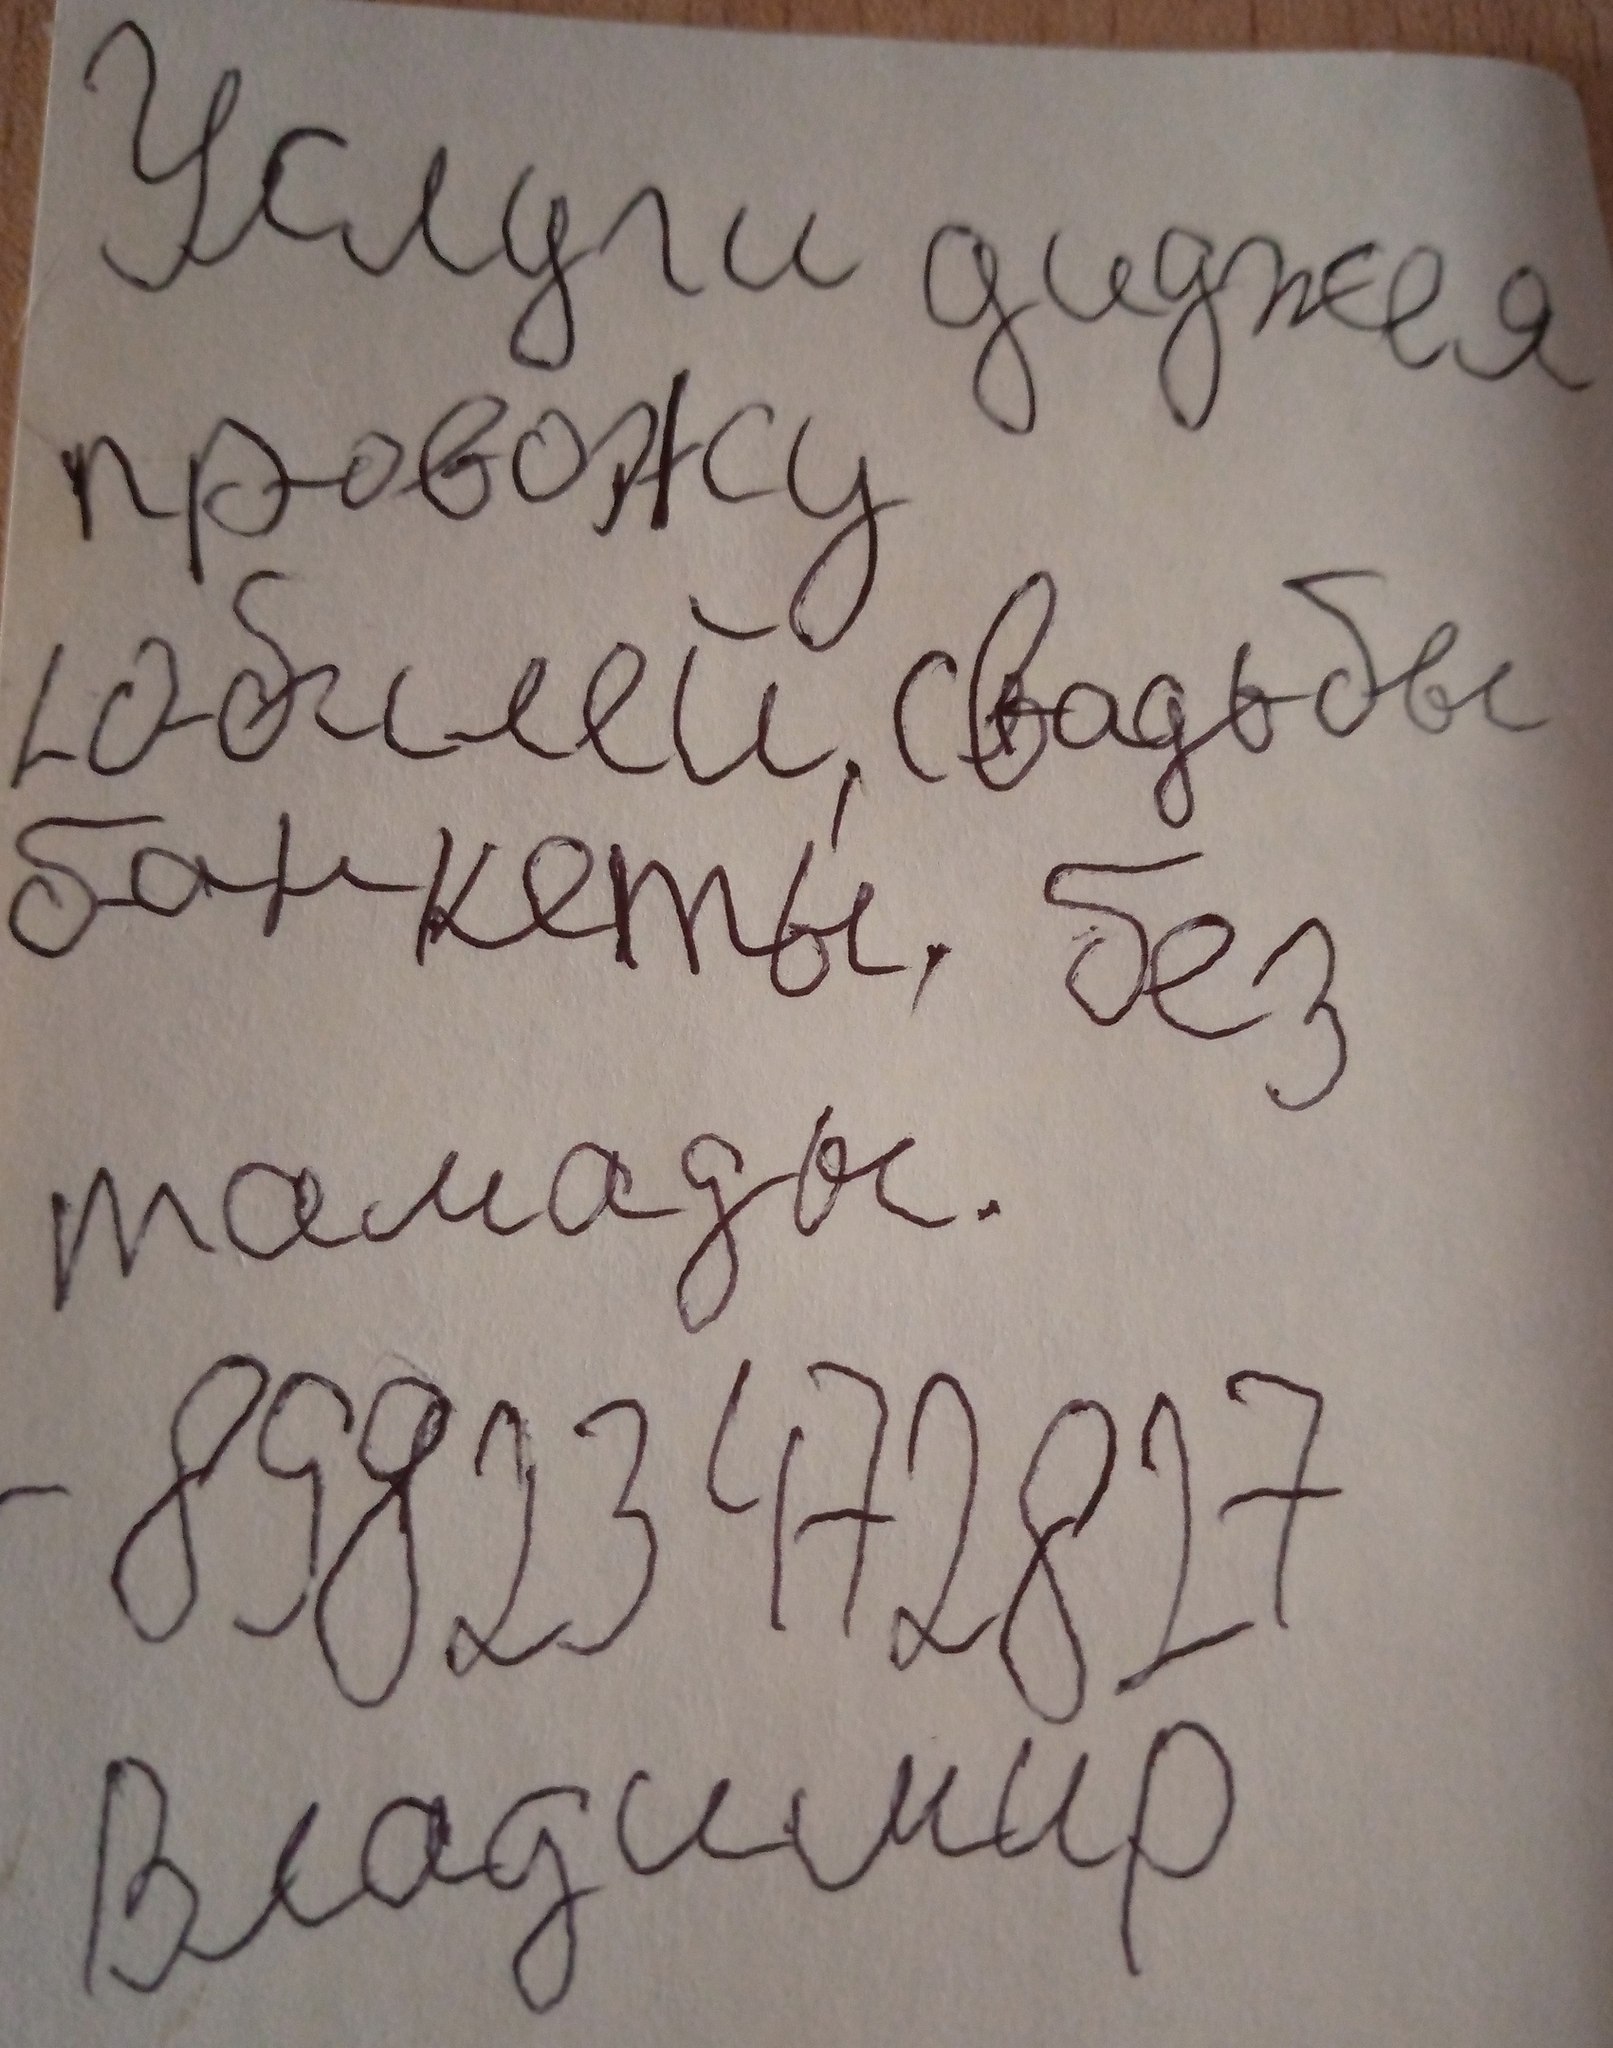 Услуги диджея
провожу
юбилей, свадьбы
банкеты, без
тамады.
- 89823472827
Владимир